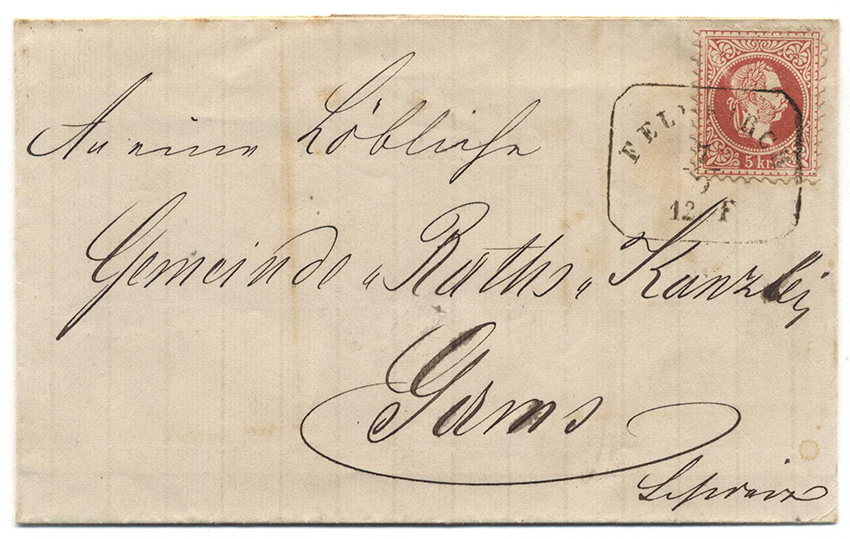 An eine Löbliche
Gemeinde „Raths„ Kanzlei
Gams
Schweiz
FEL RCH
7
9
12 F
5 kr